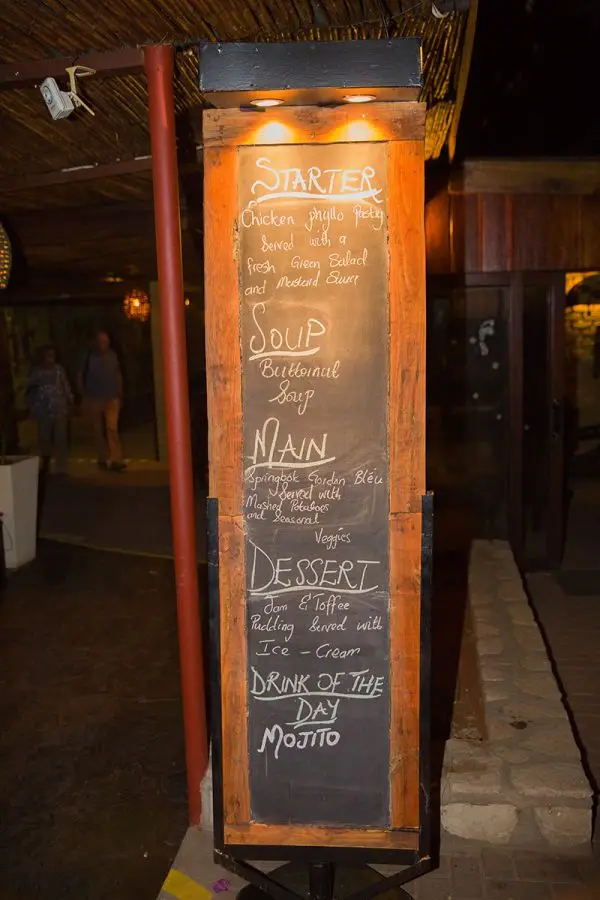 STARTER
Chicken phyllo Pastry
Served with a
fresh Green Salad
and Mustard Sauce
SOUP
Butternut
Soup
MAIN
Springbok Gordon Bléu
Served with
Mashed Potatoes
and Seasonal
Veggies
DESSERT
Jam & Toffee
Pudding Served with
Ice - Cream
DRINK OF THE
DAY
MOJITO